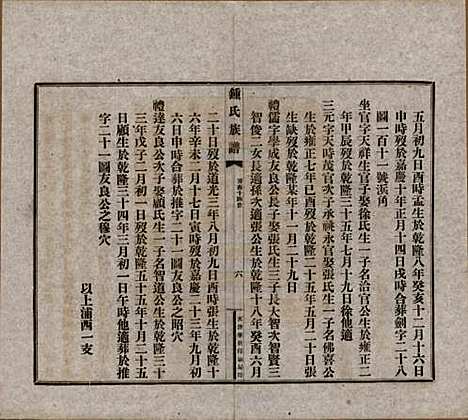 五月初九日酉時孟生於乾隆八年癸亥十二月十六日
申時歿於嘉慶十年正月十四日戌時合葬劍字二十八
圖一百十一號浜角
坐官字天祥生官子娶徐氏生一子名治官公生於雍正二
年甲辰歿於乾隆三十五年七月十九日徐他適
三元字天時茂官次子承祧永官娶吳氏生一子名佛喜公
生於雍正七年己酉歿於乾隆二十五年五月二十日
生缺歿於乾隆某年十一月二十九日
禮儒字學成友良公長子娶張氏生三子長大智次智賢三
智俊二女長適孫次適張公生於乾隆十八年癸酉六月
鍾氏族譜
六
二十日歿於道光三年八月初九日酉時張生於乾隆十
六年辛未三月十七日寅時歿於嘉慶二十三年九月初
六日申時合葬於推字二十一圖友良公之昭穴
禮達友良公次子娶顧氏生一子名智道公生於乾隆三十
三年戊子二月初一日歿於乾隆五十五年十月二十五
日顧生於乾隆三十四年三月初一日午時他適葬於推
字二十一圖友良公之穆穴
以上浦西一支